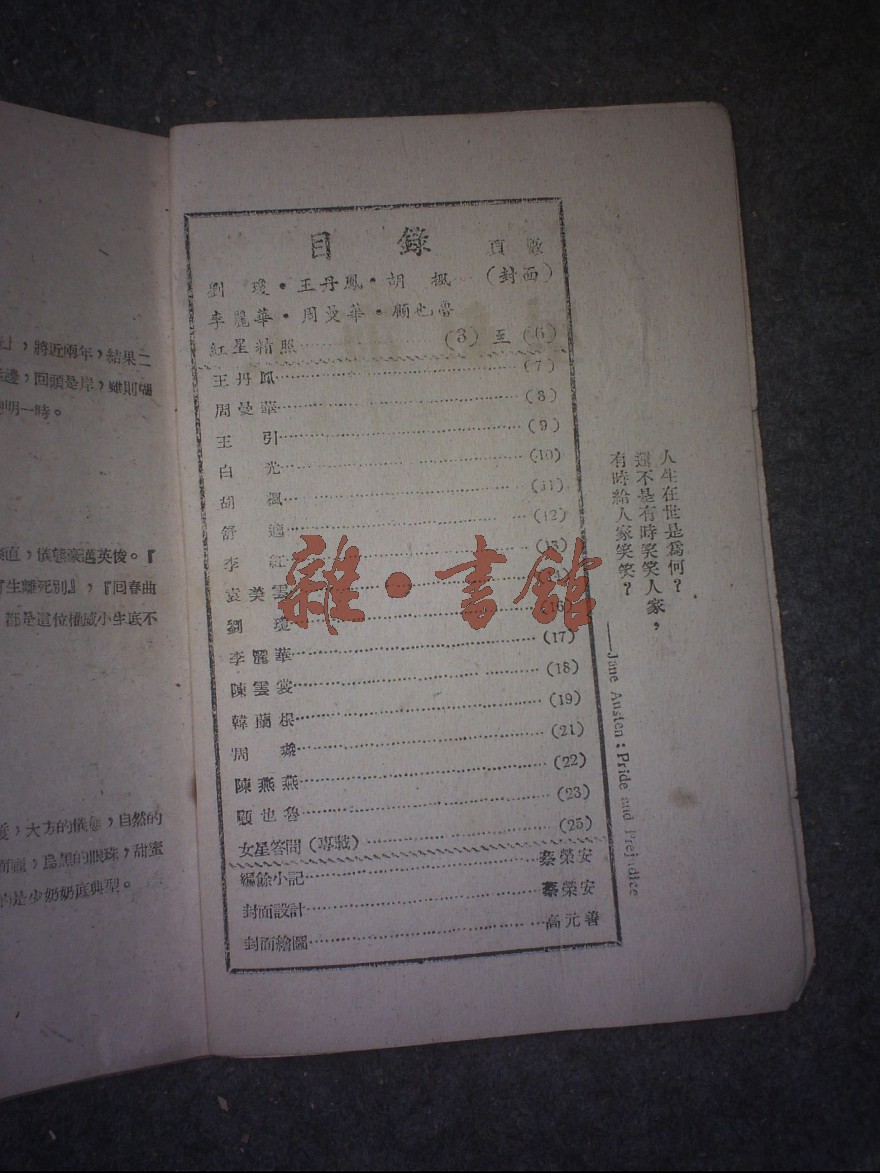 目錄 頁數
劉瓊・王丹鳳・胡楓 (封面)
李麗華・周曼華・顧也魯
紅星精照 (3) 至 (6)
王丹鳳 (7)
周曼華 (8)
王引 (9)
白光 (10)
胡楓 (11)
舒適 (12)
李紅 (13)
袁美雲
劉瓊 (16)
李麗華 (17)
陳雲裳 (18)
韓蘭根 (19)
周璇 (21)
陳燕燕 (22)
顧也魯 (23)
女星答問(專載) (25)
編餘小記 蔡榮安
封面設計 蔡榮安
封面繪圖 高元善
人生在世是爲何?
還不是有時笑笑人家,
有時給人家笑笑?
——Jane Austen: Pride and Prejudice
」,將近兩年,結果二
邊,回頭是岸,雖則聰
明一時。
直,儀態豪邁英俊。『
『生離死別』,『回春曲
都是這位權威小生底不
,大方的儀態,自然的
,烏黑的眼珠,甜蜜
的是少奶奶底典型。
雜・書館